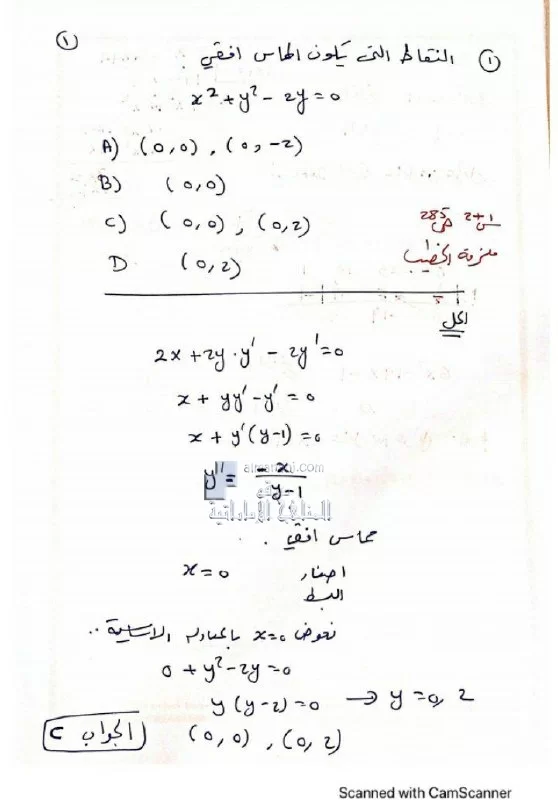 ١
١ النقاط التى يكون المماس افقي .
x² + y² - 2y = 0
A) (0,0) , (0,-2)
B) (0,0)
C) (0,0) , (0,2)
D (0,2)
س 2+1 ص 285
ملزمة الخطيب
الحل
2x + 2y · y' - 2y' = 0
x + yy' - y' = 0
x + y'(y-1) = 0
almanahj.com
y' = -x / y-1
موقع
المناهج الإماراتية
مماس افقي .
اصفار x = 0
البسط
نعوض x=0 بالمعادلة الاساسية ..
0 + y² - 2y = 0
y (y-2) = 0 → y = 0, 2
(0,0) , (0,2) الجواب C
Scanned with CamScanner